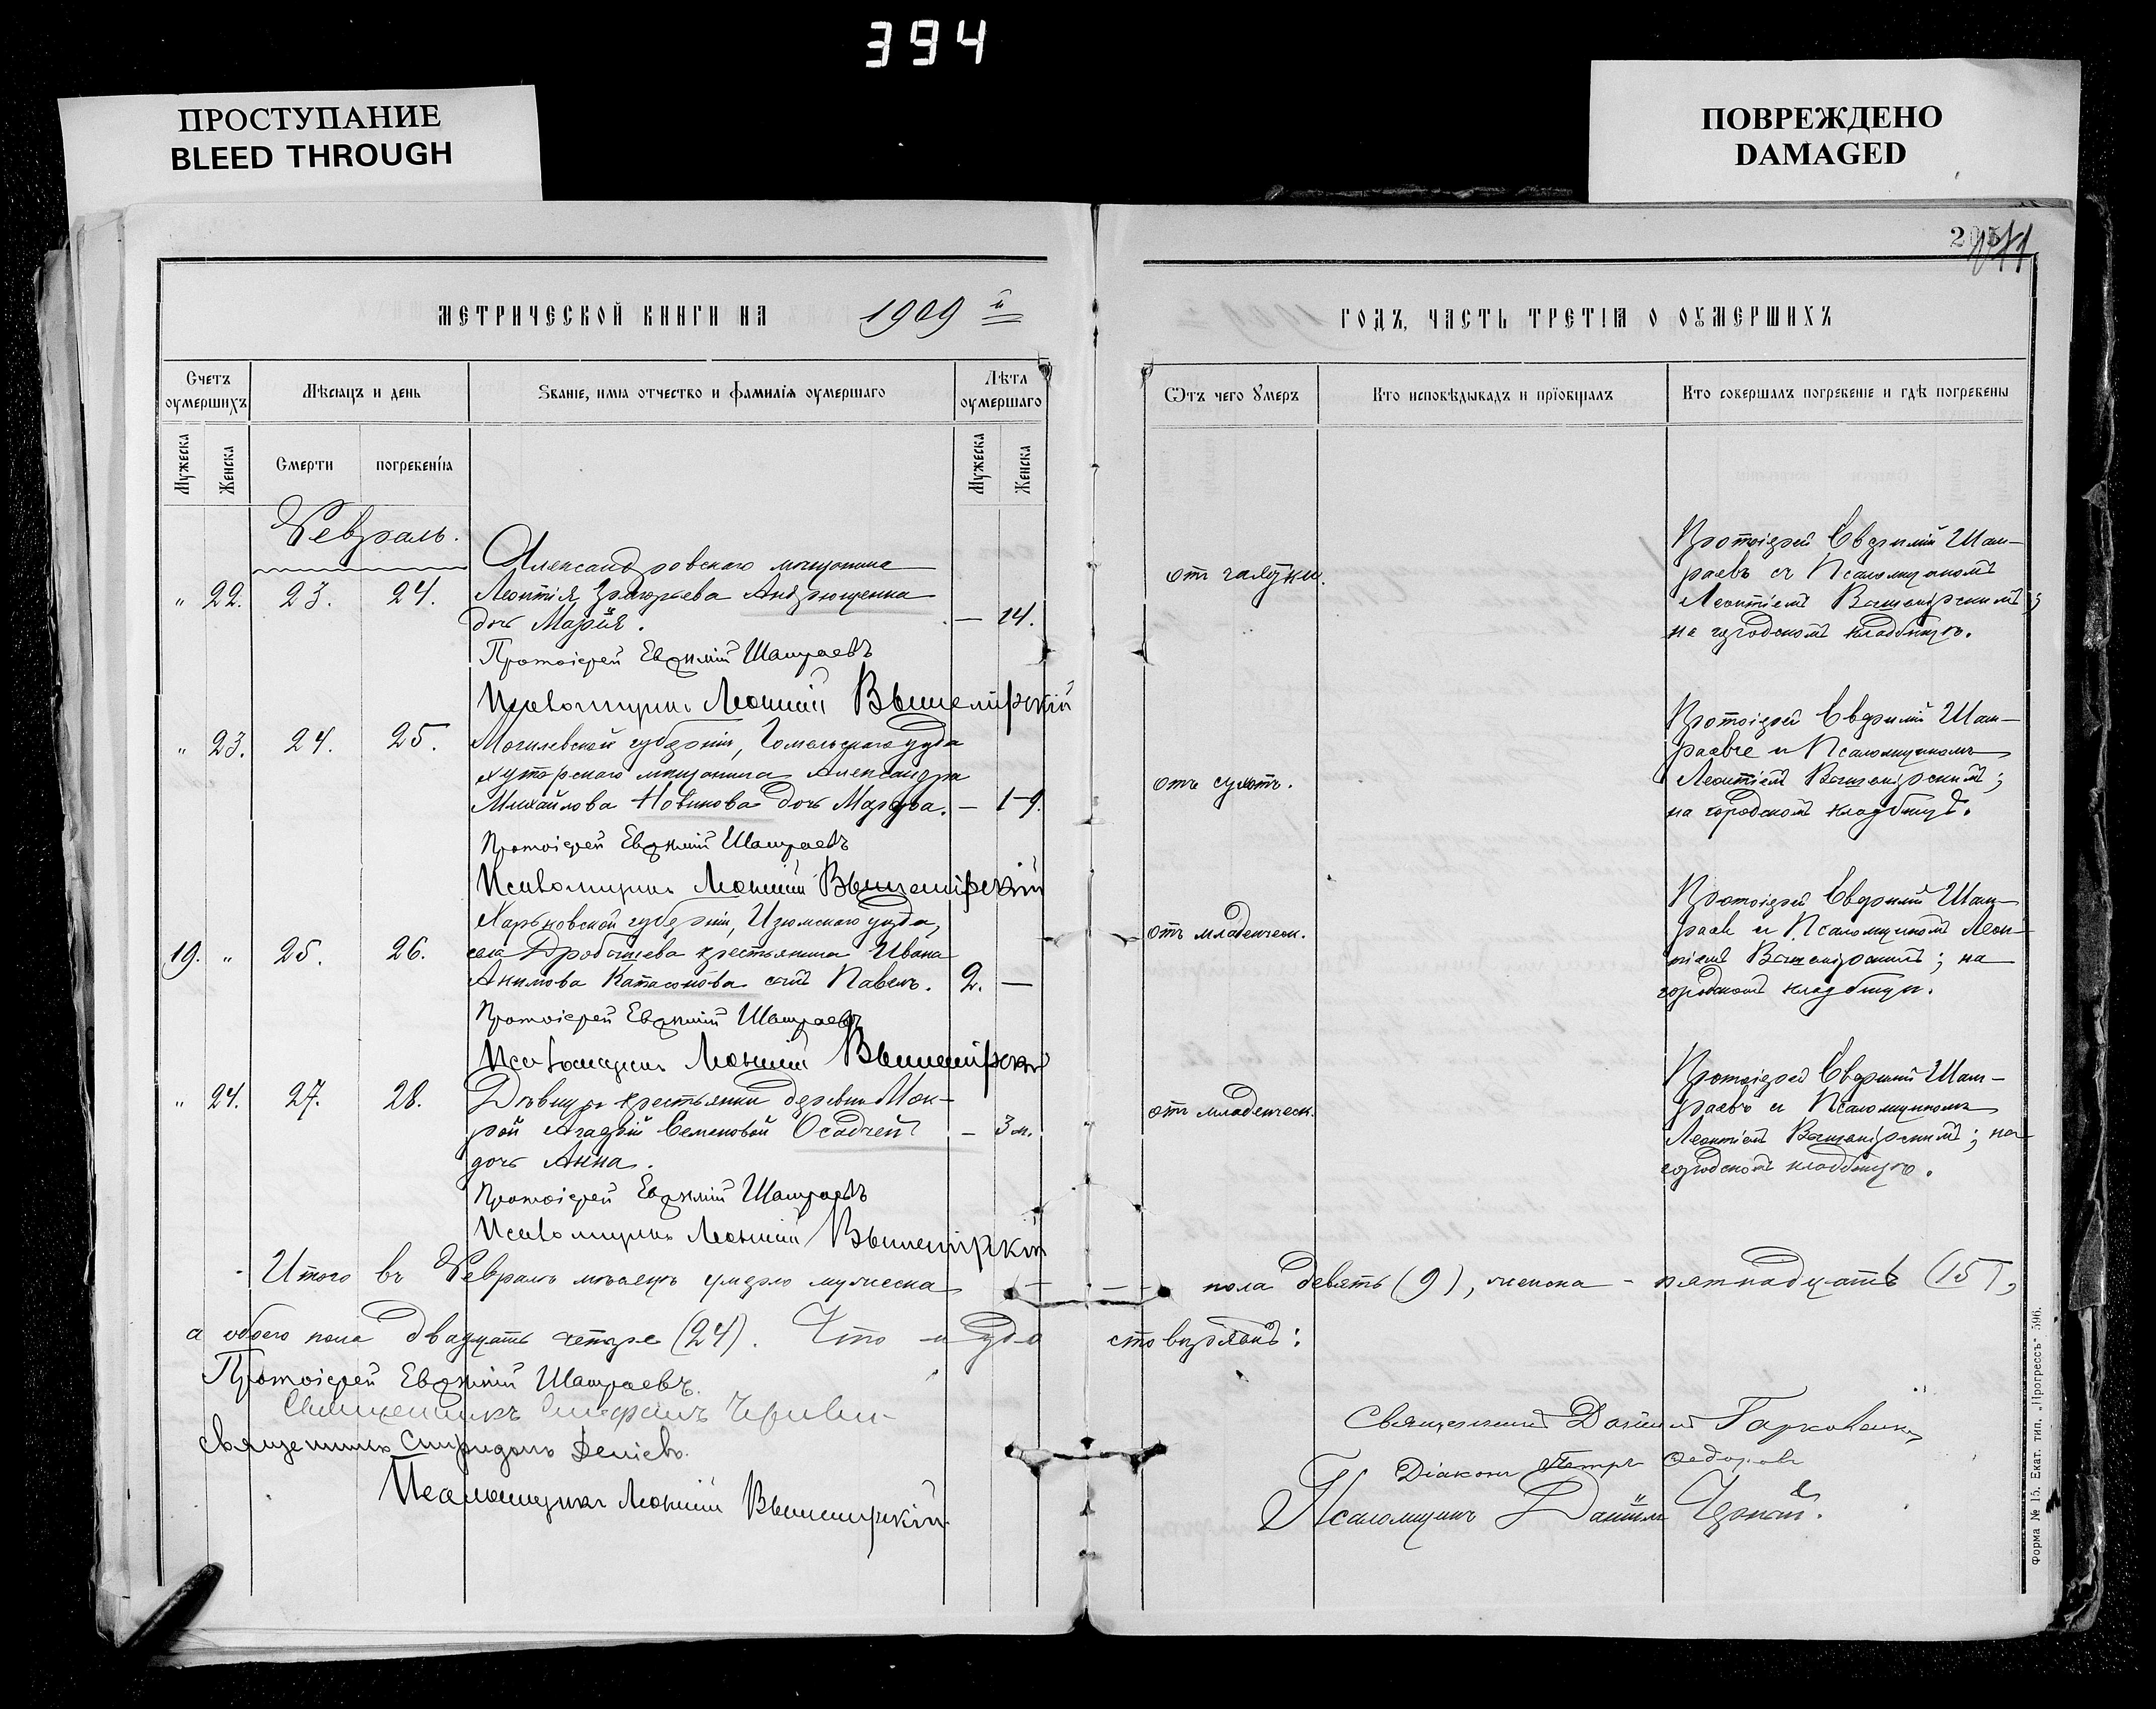 394
ПРОСТУПАНИЕ
BLEED THROUGH
ПОВРЕЖДЕНО
DAMAGED
МЕТРИЧЕСКОЙ КНИГИ НА 1909 й
Счетъ оумершихъ
Мѣсяцъ и день
Званіе, имя отчество и фамилія оумершаго
Лѣта оумершаго
Мужеска
Женска
Смерти
погребенія
Мужеска
Женска
Февраль.
Александровскаго мѣщанина
" 22. 23. 24. Леонтія Андрющенка
дочь Марія. — 14.
Протоіерей Евфимій Шатраевъ
Псаломщикъ Леонтій Вышемірскій
" 23. 24. 25. Могилевской губерніи, Гомельскаго уѣзда
мѣщанина Александра
Михайлова Новикова дочь Марѳа. — 1-9.
Протоіерей Евфимій Шатраевъ
Псаломщикъ Леонтій Вышемірскій
Харьковской губерніи, Изюмскаго уѣзда,
19. " 25. 26. села Дробышева крестьянина Ивана
Акимова Катасонова сынъ Павелъ. 2. —
Протоіерей Евфимій Шатраевъ
Псаломщикъ Леонтій Вышемірскій
" 24. 27. 28. Дѣвицы крестьянки деревни Мок-
рой Семеновой Осадчей — 3 м.
дочь Анна.
Протоіерей Евфимій Шатраевъ
Псаломщикъ Леонтій Вышемірскій
Итого въ Февралѣ мѣсяцѣ умерло мужеска
а обоего пола двадцать четыре (24). Что и удо
Протоіерей Евфимій Шатраевъ.
Священникъ Стефанъ
Священникъ Спиридонъ
Псаломщикъ Леонтій Вышемірскій.
205
ГОДЪ, ЧАСТЬ ТРЕТІЯ О ОУМЕРШИХЪ
Ѿтъ чего умеръ
Кто исповѣдывалъ и пріобщалъ
Кто совершалъ погребеніе и гдѣ погребены
от чахотки.
Протоіерей Евфимій Шат-
раевъ съ Псаломщикомъ
Леонтіемъ Вышемірскимъ;
на городскомъ кладбищѣ.
отъ сухотъ.
Протоіерей Евфимій Шат-
раевъ съ Псаломщикомъ
Леонтіемъ Вышемірскимъ;
на городскомъ кладбищѣ.
отъ младенческ.
Протоіерей Евфимій Шат-
раевъ съ Псаломщикомъ Леон-
тіемъ Вышемірскимъ; на
городскомъ кладбищѣ.
отъ младенческ.
Протоіерей Евфимій Шат-
раевъ съ Псаломщикомъ
Леонтіемъ Вышемірскимъ; на
городскомъ кладбищѣ.
пола девять (9), женска - пятнадцать (15),
стовѣряемъ:
Священникъ Даніилъ
Діаконъ Петръ Федоровъ
Псаломщикъ Даніилъ
Форма № 15. Екат. тип. „Прогрессъ" 596.